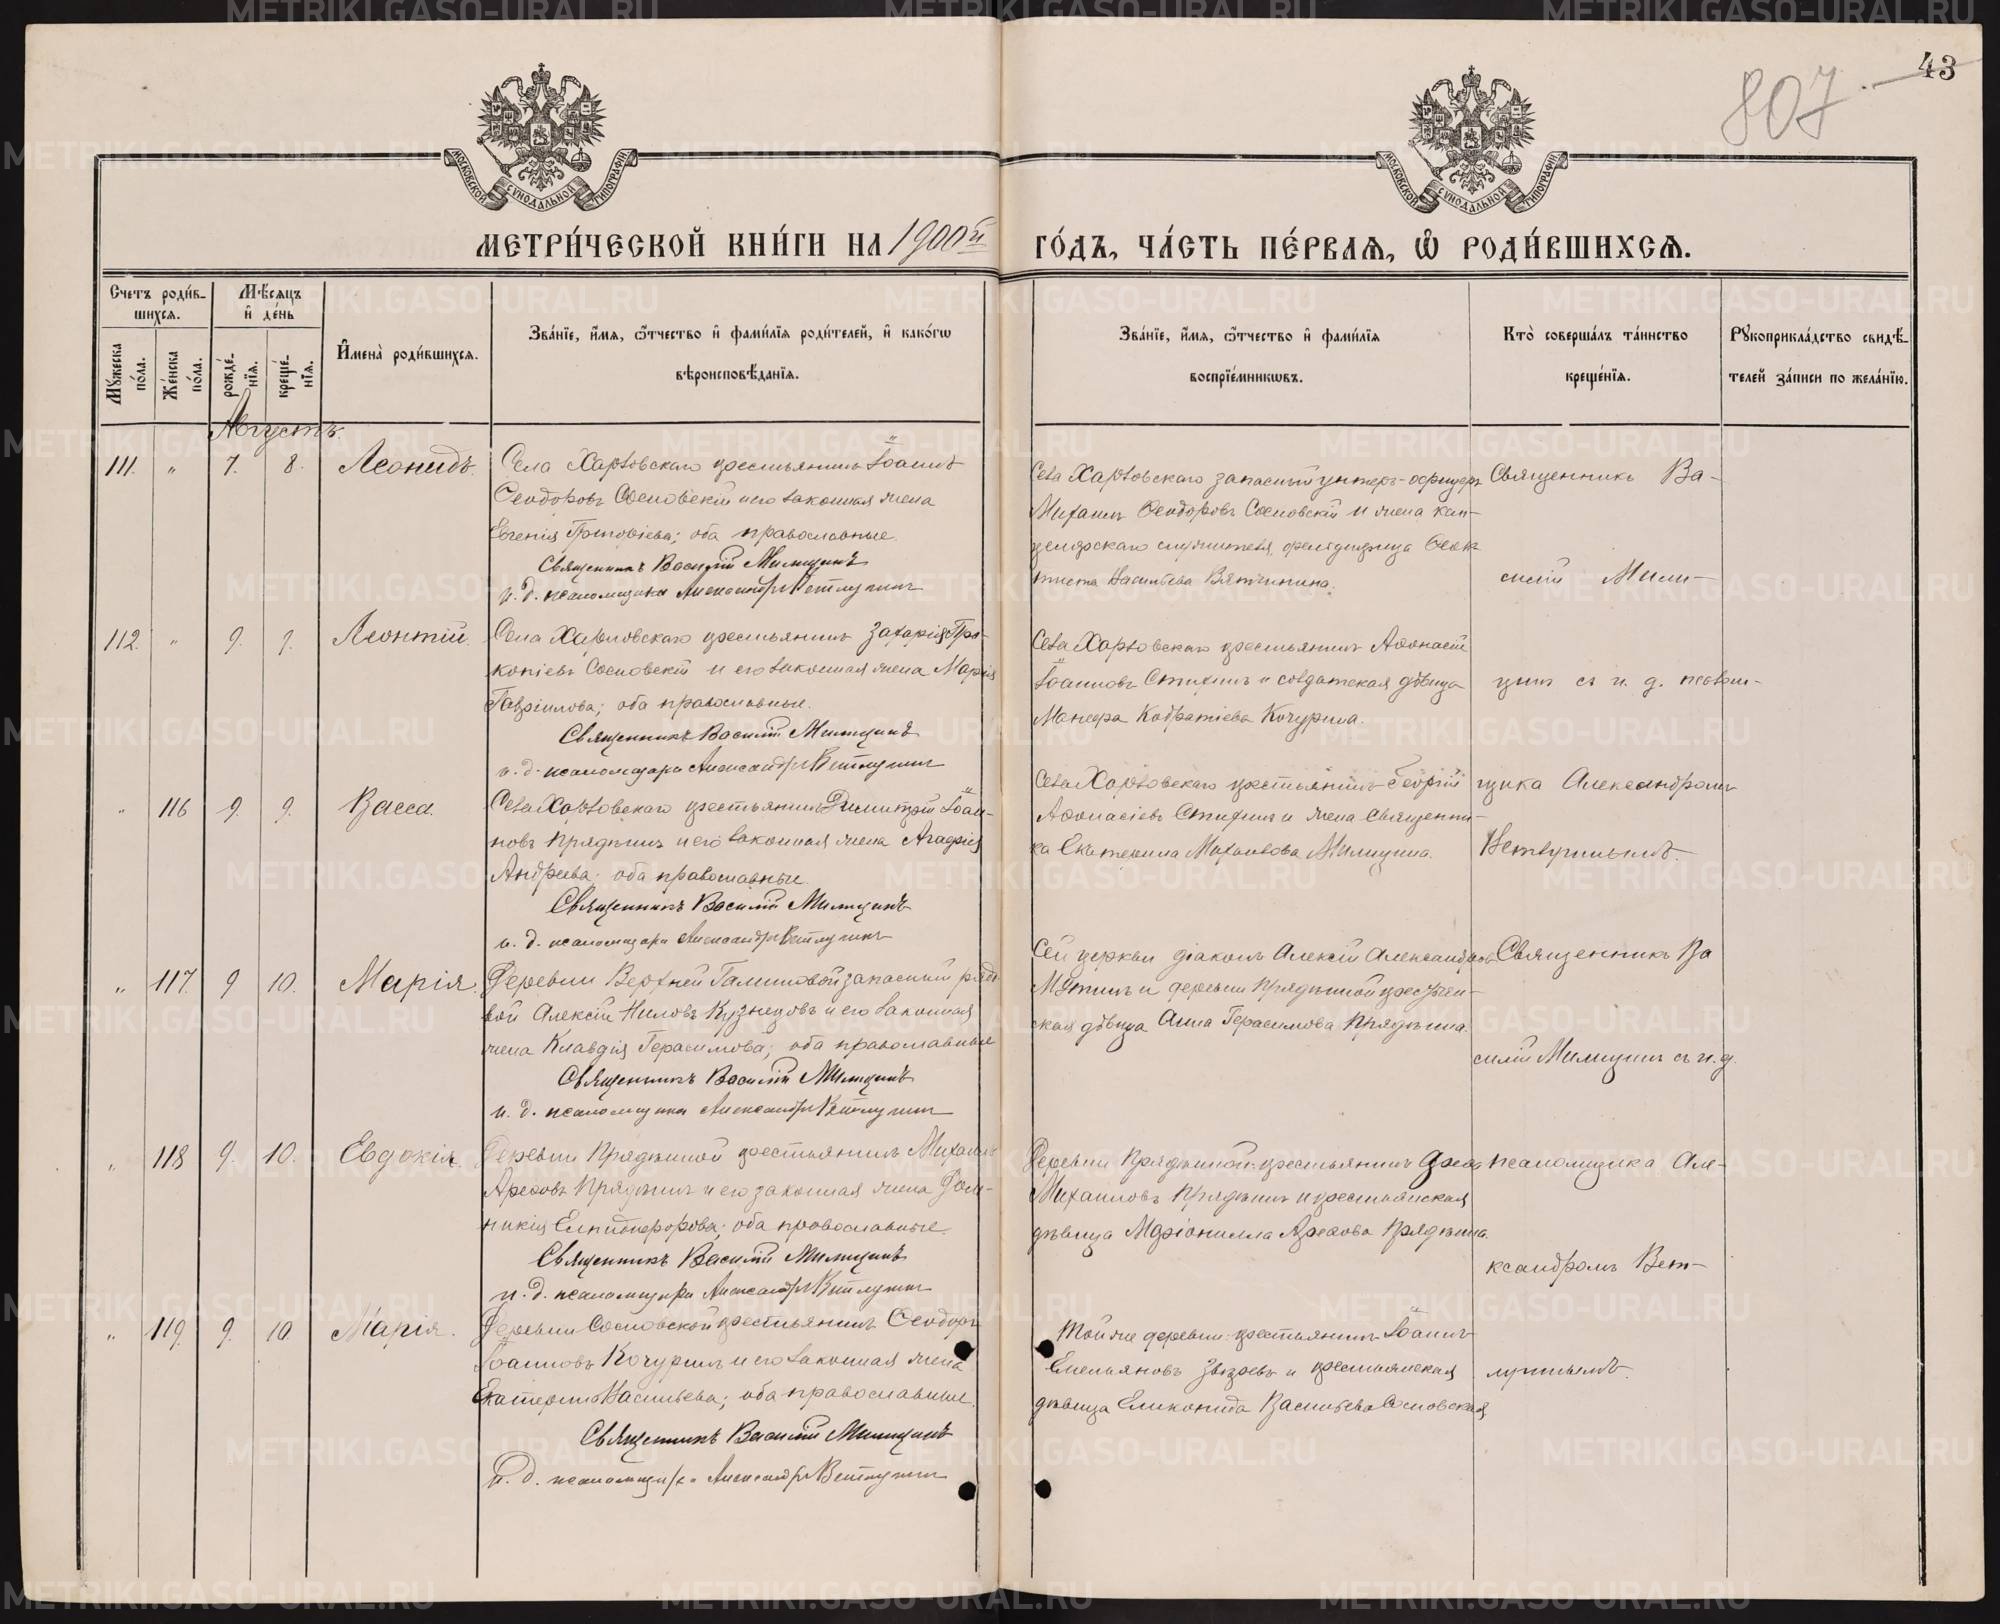 43
807.
МОСКОВСКОЙ СѴНОДАЛЬНОЙ ТИПОГРАФІИ
МОСКОВСКОЙ СѴНОДАЛЬНОЙ ТИПОГРАФІИ
МЕТРИ́ЧЕСКОЙ КНИ́ГИ НА 1900й ГО́ДЪ, ЧА́СТЬ ПЕ́РВАѦ, Ѿ РОДИ́ВШИХСѦ.
Счетъ роди́в-
шихсѧ.
Мꙋ́жеска по́ла.
Же́нска по́ла.
Мѣсяцъ и҆ де́нь
рожде́-нїѧ.
креще́-нїѧ.
И҆мена̀ роди́вшихсѧ.
Зва́нїе, и҆́мѧ, ѻ҆́тчество и҆ фами́лїѧ роди́телей, и҆ како́гѡ
вѣроисповѣ́данїѧ.
Зва́нїе, и҆́мѧ, ѻ҆́тчество и҆ фами́лїѧ
воспрїе́мникѡвъ.
Кто̀ соверша́лъ та́инство
креще́нїѧ.
Рꙋкоприкла́дство свидѣ́-
телей за́писи по жела́нїю.
Августъ.
111. " 7. 8. Леонидъ.
Села Харловскаго крестьянинъ Іоаннъ
Ѳеодоровъ Сосновскій и его законная жена
Евгенія Григорьева; оба православные.
Священникъ Василій Милицинъ
и. д. псаломщика Александръ Ветлугинъ
Села Харловскаго запасный унтеръ-офицеръ
Михаилъ Ѳеодоровъ Сосновскій и жена кан-
целярскаго служителя,
Васильева Вятчинина.
Священникъ Ва-
силій Мили-
112. " 9. 9. Леонтій.
Села Харловскаго крестьянинъ Захарія Про-
копіевъ Сосновскій и его законная жена Марія
Гавріилова; оба православные.
Священникъ Василій Милицинъ
и. д. псаломщика Александръ Ветлугинъ
Села Харловскаго крестьянинъ Аѳонасій
Іоанновъ Стихинъ и солдатская дѣвица
Кодратіева Кочурина.
цинъ съ и. д. псалом-
" 116 9. 9. Васса.
Села Харловскаго крестьянинъ Димитрій Іоан-
новъ Прядеинъ и его законная жена Агафія
Андреева; оба православные.
Священникъ Василій Милицинъ
и. д. псаломщика Александръ Ветлугинъ
Села Харловскаго крестьянинъ Георгій
Аѳонасіевъ Стихинъ и жена священни-
ка Екатерина Михаилова Милицина.
щика Александромъ
Ветлугинымъ.
" 117. 9 10. Марія.
Деревни Верхней Галишовой запасный рядо-
вой Алексій Ниловъ Кузнецовъ и его законная
жена Клавдія Герасимова; оба православные
Священникъ Василій Милицинъ
и. д. псаломщика Александръ Ветлугинъ
Сей церкви діаконъ Алексій Александровъ
Мотинъ и деревни Прядеиной крестьян-
ская дѣвица Анна Герасимова Прядеина.
Священникъ Ва
силій Милицинъ съ и. д.
" 118 9. 10. Евдокія.
Деревни Прядеиной крестьянинъ Михаилъ
Арефовъ Прядеинъ и его законная жена Дом-
никія Елпидифорова; оба православные.
Священникъ Василій Милицинъ
и. д. псаломщика Александръ Ветлугинъ
Деревни Прядеиной крестьянинъ
Михаиловъ Прядеинъ и крестьянская
дѣвица Маріонилла Арефова Прядеина.
псаломщика Але-
ксандромъ Вет-
" 119. 9. 10 Марія.
Деревни Сосновской крестьянинъ Ѳеодоръ
Іоанновъ Кочуринъ и его законная жена
Екатерина Васильева; оба православные.
Священникъ Василій Милицинъ
и. д. псаломщика Александръ Ветлугинъ
Той же деревни крестьянинъ Іоаннъ
Емельяновъ Звѣревъ и крестьянская
дѣвица Еликонида Васильева Сосновская
лугинымъ.